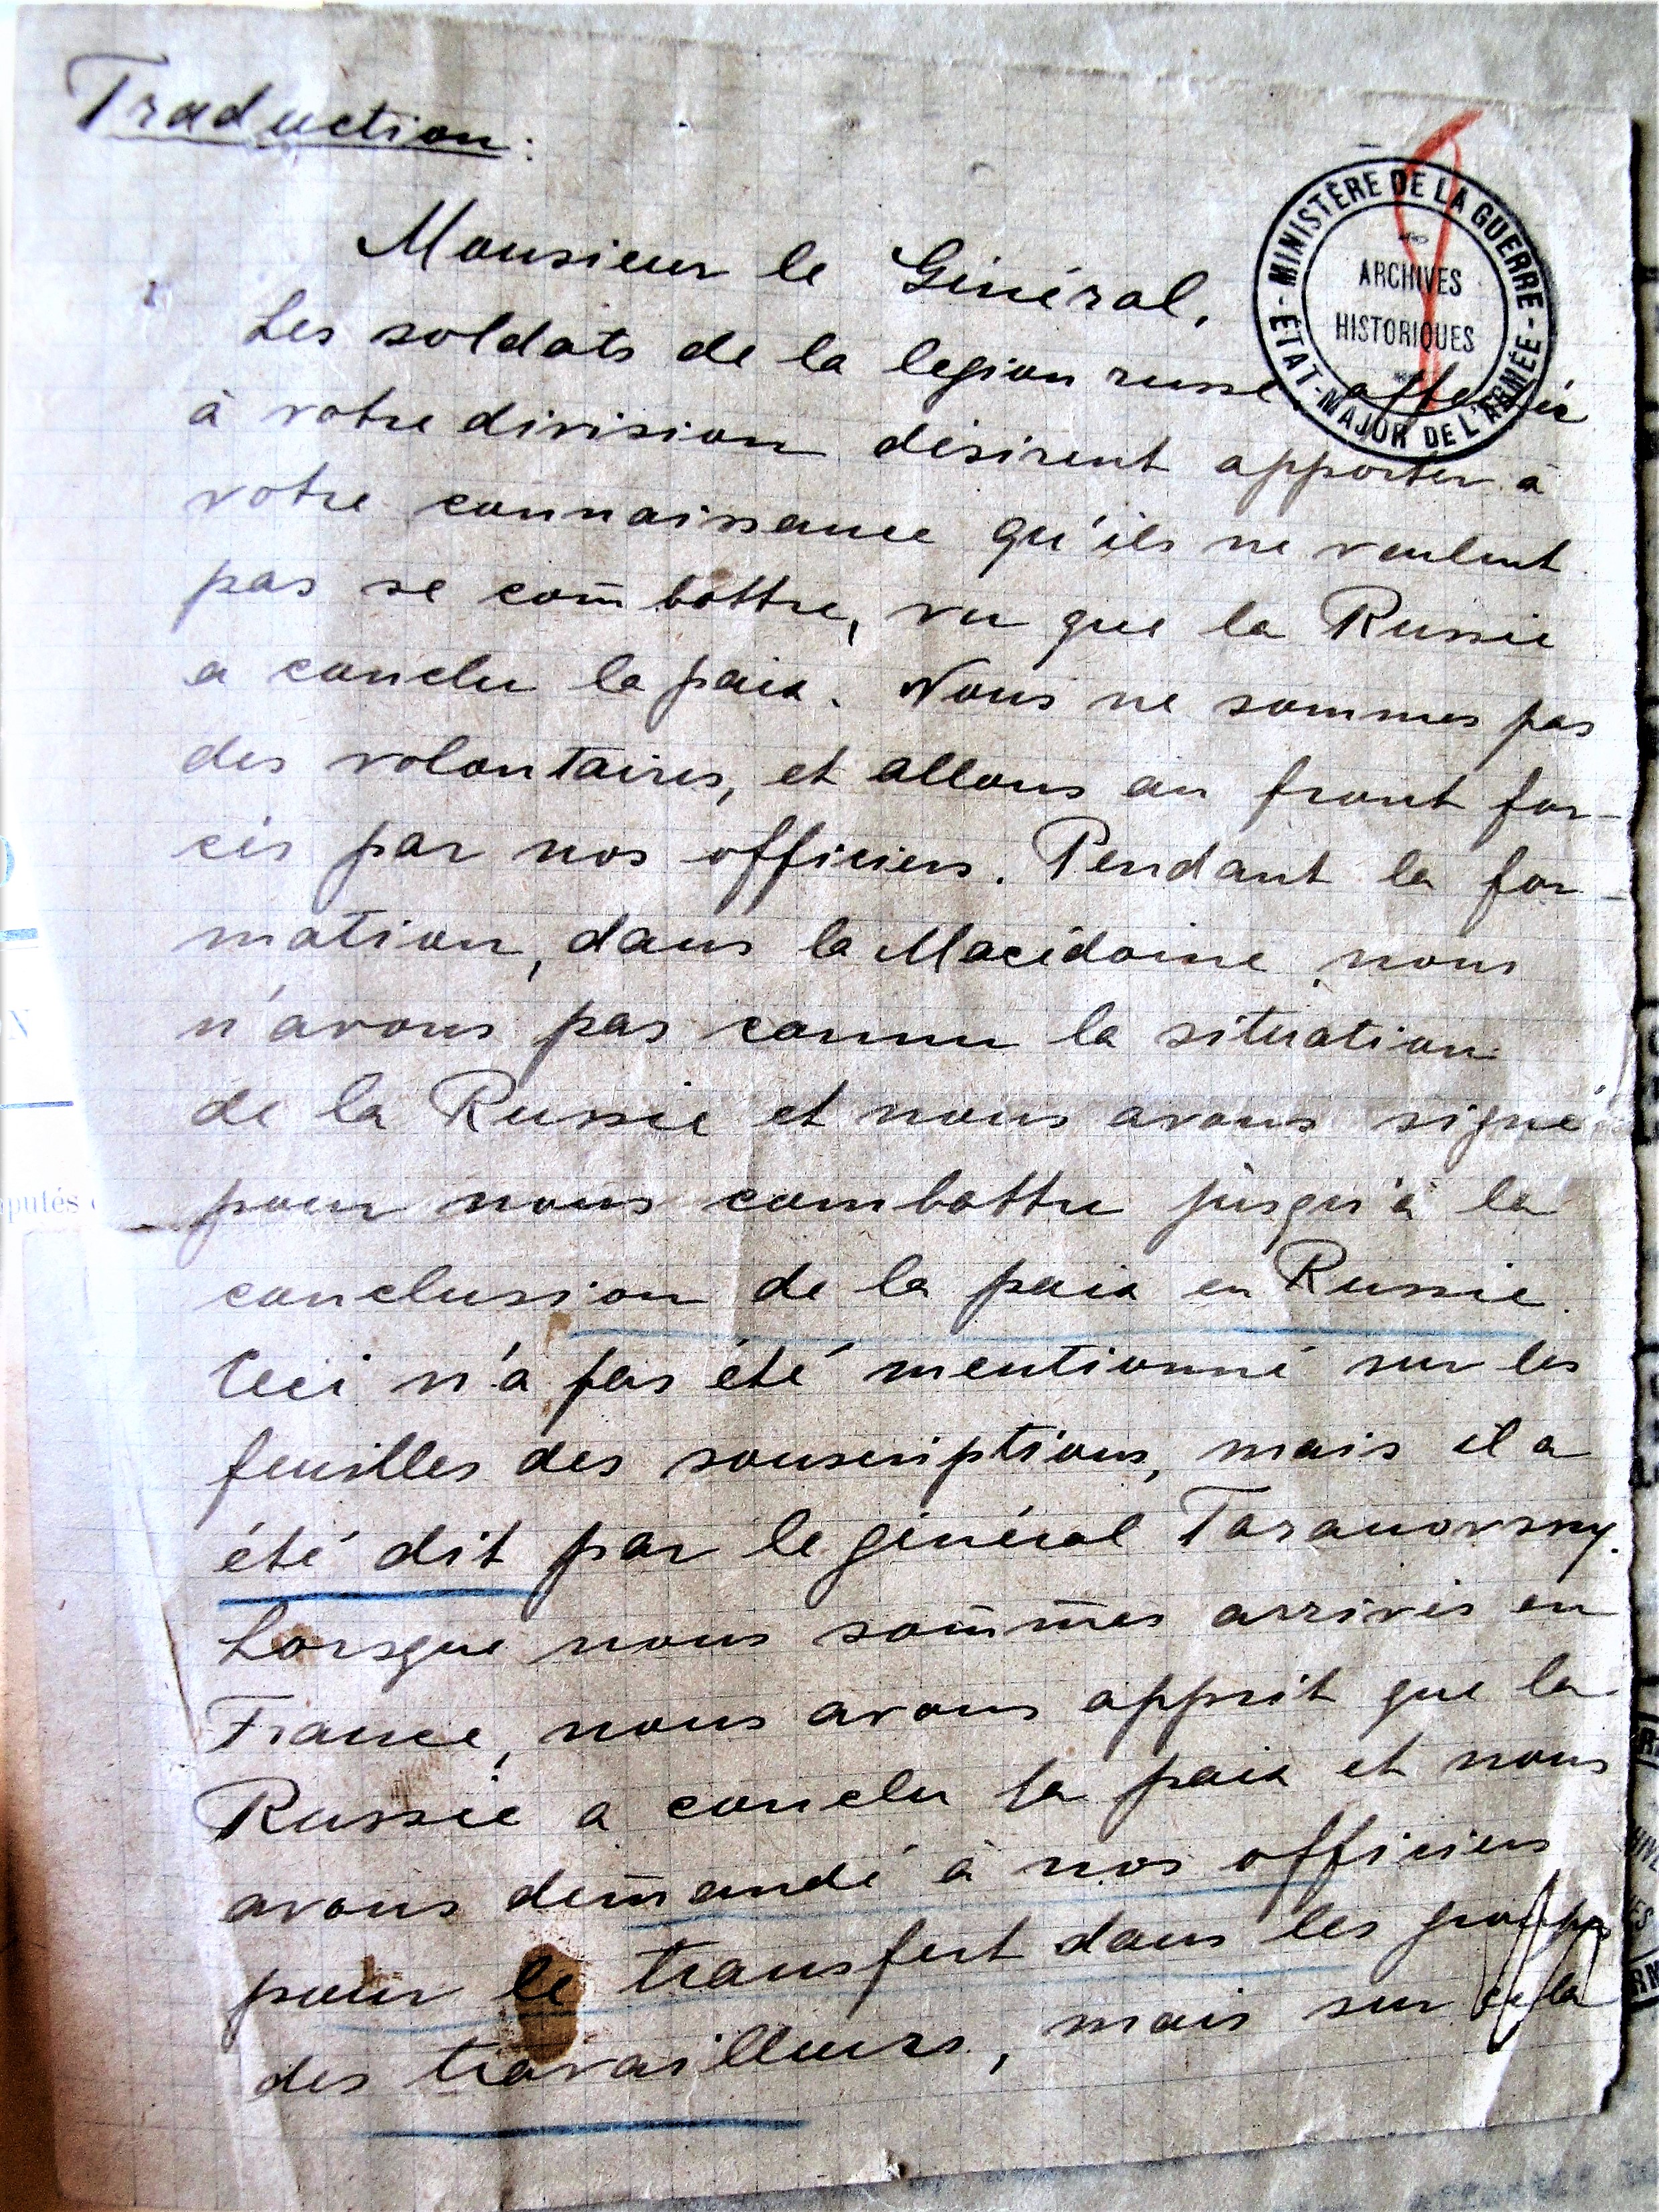 Traduction:
Monsieur le Général,
MINISTÈRE DE LA GUERRE - ÉTAT-MAJOR DE L'ARMÉE -
ARCHIVES
HISTORIQUES
Les soldats de la legion russe, affectée
à votre division désirent apporter à
votre connaissance qu'ils ne veulent
pas se combattre, vu que la Russie
a conclu la paix. Nous ne sommes pas
des volontaires, et allons au front for-
cés par nos officiers. Pendant la for-
mation, dans la Macédoine nous
n'avons pas connu la situation
de la Russie et nous avons signé
pour nous combattre jusqu'à la
conclusion de la paix en Russie.
Ceci n'a pas été mentionné sur les
feuilles des souscriptions, mais il a
été dit par le général Taranovsky.
Lorsque nous sommes arrivés en
France, nous avons apprit que la
Russie a conclu la paix et nous
avons demandé à nos officiers
pour le transfert dans les groupes
des travailleurs, mais sur cela
putés